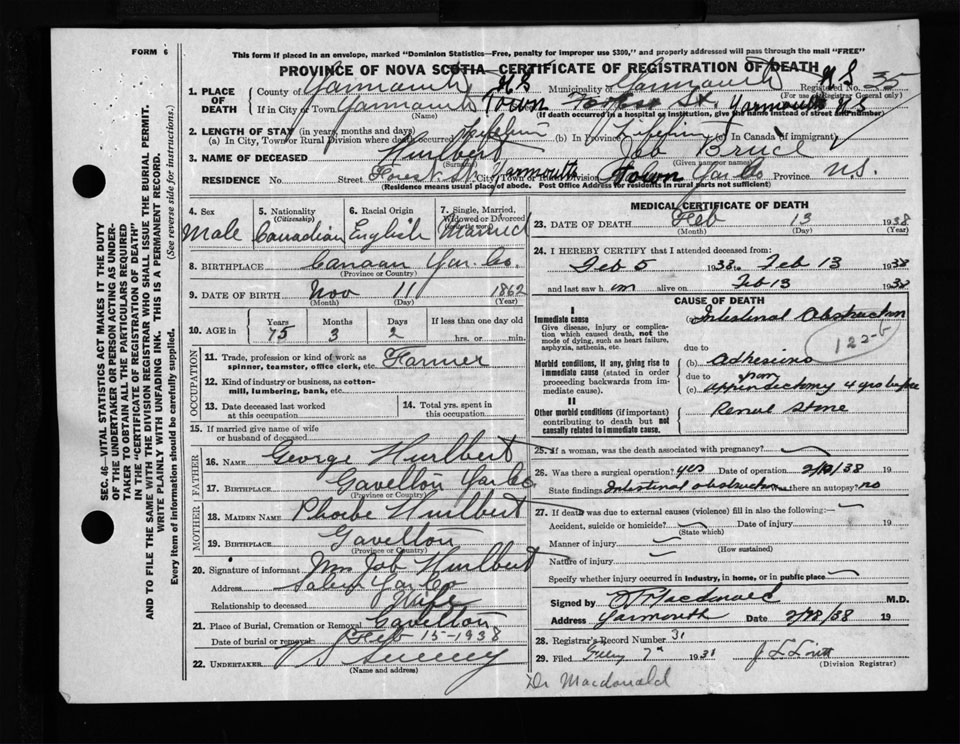 FORM 6
This form if placed in an envelope, marked "Dominion Statistics—Free, penalty for improper use $300," and properly addressed will pass through the mail "FREE"
PROVINCE OF NOVA SCOTIA—CERTIFICATE OF REGISTRATION OF DEATH
SEC. 46—VITAL STATISTICS ACT MAKES IT THE DUTY
OF THE UNDERTAKER OR PERSON ACTING AS UNDER-
TAKER TO OBTAIN ALL THE PARTICULARS REQUIRED
IN THE "CERTIFICATE OF REGISTRATION OF DEATH"
AND TO FILE THE SAME WITH THE DIVISION REGISTRAR WHO SHALL ISSUE THE BURIAL PERMIT.
WRITE PLAINLY WITH UNFADING INK. THIS IS A PERMANENT RECORD.
Every item of information should be carefully supplied. (See reverse side for instructions.)
1. PLACE OF DEATH
County of Yarmouth N S Municipality of Yarmouth N S Registered No. 35
(For use of Registrar General only)
If in City or Town Yarmouth Town Forest St. Yarmouth N S
(Name) (If death occurred in a hospital or institution, give the name instead of street and number)
2. LENGTH OF STAY (in years, months and days)
(a) In City, Town or Rural Division where death occurred Lifetime (b) In Province Lifetime (c) In Canada (if immigrant)
3. NAME OF DECEASED Hurlbert Job Bruce
(Surname) (Given name or names)
RESIDENCE No. Street Forest St. City, Town or Rural Division Yarmouth Town Yar Co Province N.S.
(Residence means usual place of abode. Post Office Address for residents in rural parts not sufficient)
4. Sex Male
5. Nationality (Citizenship) Canadian
6. Racial Origin English
7. Single, Married, Widowed or Divorced Married
8. BIRTHPLACE Canaan Yar. Co.
(Province or Country)
9. DATE OF BIRTH Nov 11 1862
(Month) (Day) (Year)
10. AGE in Years 75 Months 3 Days 2 If less than one day old hrs. or min.
OCCUPATION
11. Trade, profession or kind of work as spinner, teamster, office clerk, etc. Farmer
12. Kind of industry or business, as cotton-mill, lumbering, bank, etc.
13. Date deceased last worked at this occupation
14. Total yrs. spent in this occupation
15. If married give name of wife or husband of deceased
FATHER
16. NAME George Hurlbert
17. BIRTHPLACE Gavelton Yar Co.
(Province or Country)
MOTHER
18. MAIDEN NAME Phoebe Hurlbert
19. BIRTHPLACE Gavelton
(Province or Country)
20. Signature of informant Mrs Job Hurlbert
Address Yar Co
Relationship to deceased Wife
21. Place of Burial, Cremation or Removal Gavelton
Date of burial or removal Feb 15-1938
22. UNDERTAKER Sweeny
(Name and address)
MEDICAL CERTIFICATE OF DEATH
23. DATE OF DEATH Feb 13 1938
(Month) (Day) (Year)
24. I HEREBY CERTIFY that I attended deceased from:
Feb 5 1938 to Feb 13 1938
and last saw h im alive on Feb 13 1938
CAUSE OF DEATH
I
Immediate cause
Give disease, injury or complication which caused death, not the mode of dying, such as heart failure, asphyxia, asthenia, etc.
(a) Intestinal Obstruction
122-b
due to
Morbid conditions, if any, giving rise to immediate cause (stated in order proceeding backwards from immediate cause).
(b) Adhesions
due to from
(c) Appendectomy 4 yrs before
II
Other morbid conditions (if important) contributing to death but not causally related to immediate cause.
Renal Stone
25. If a woman, was the death associated with pregnancy?
26. Was there a surgical operation? yes Date of operation 19
State findings Intestinal obstruction Was there an autopsy? no
27. If death was due to external causes (violence) fill in also the following:—
Accident, suicide or homicide? Date of injury 19
(State which)
Manner of injury
(How sustained)
Nature of injury
Specify whether injury occurred in industry, in home, or in public place
Signed by Macdonald M.D.
Address Yarmouth Date 19
28. Registrar's Record Number 31
29. Filed 7th 19
(Division Registrar)
Dr Macdonald